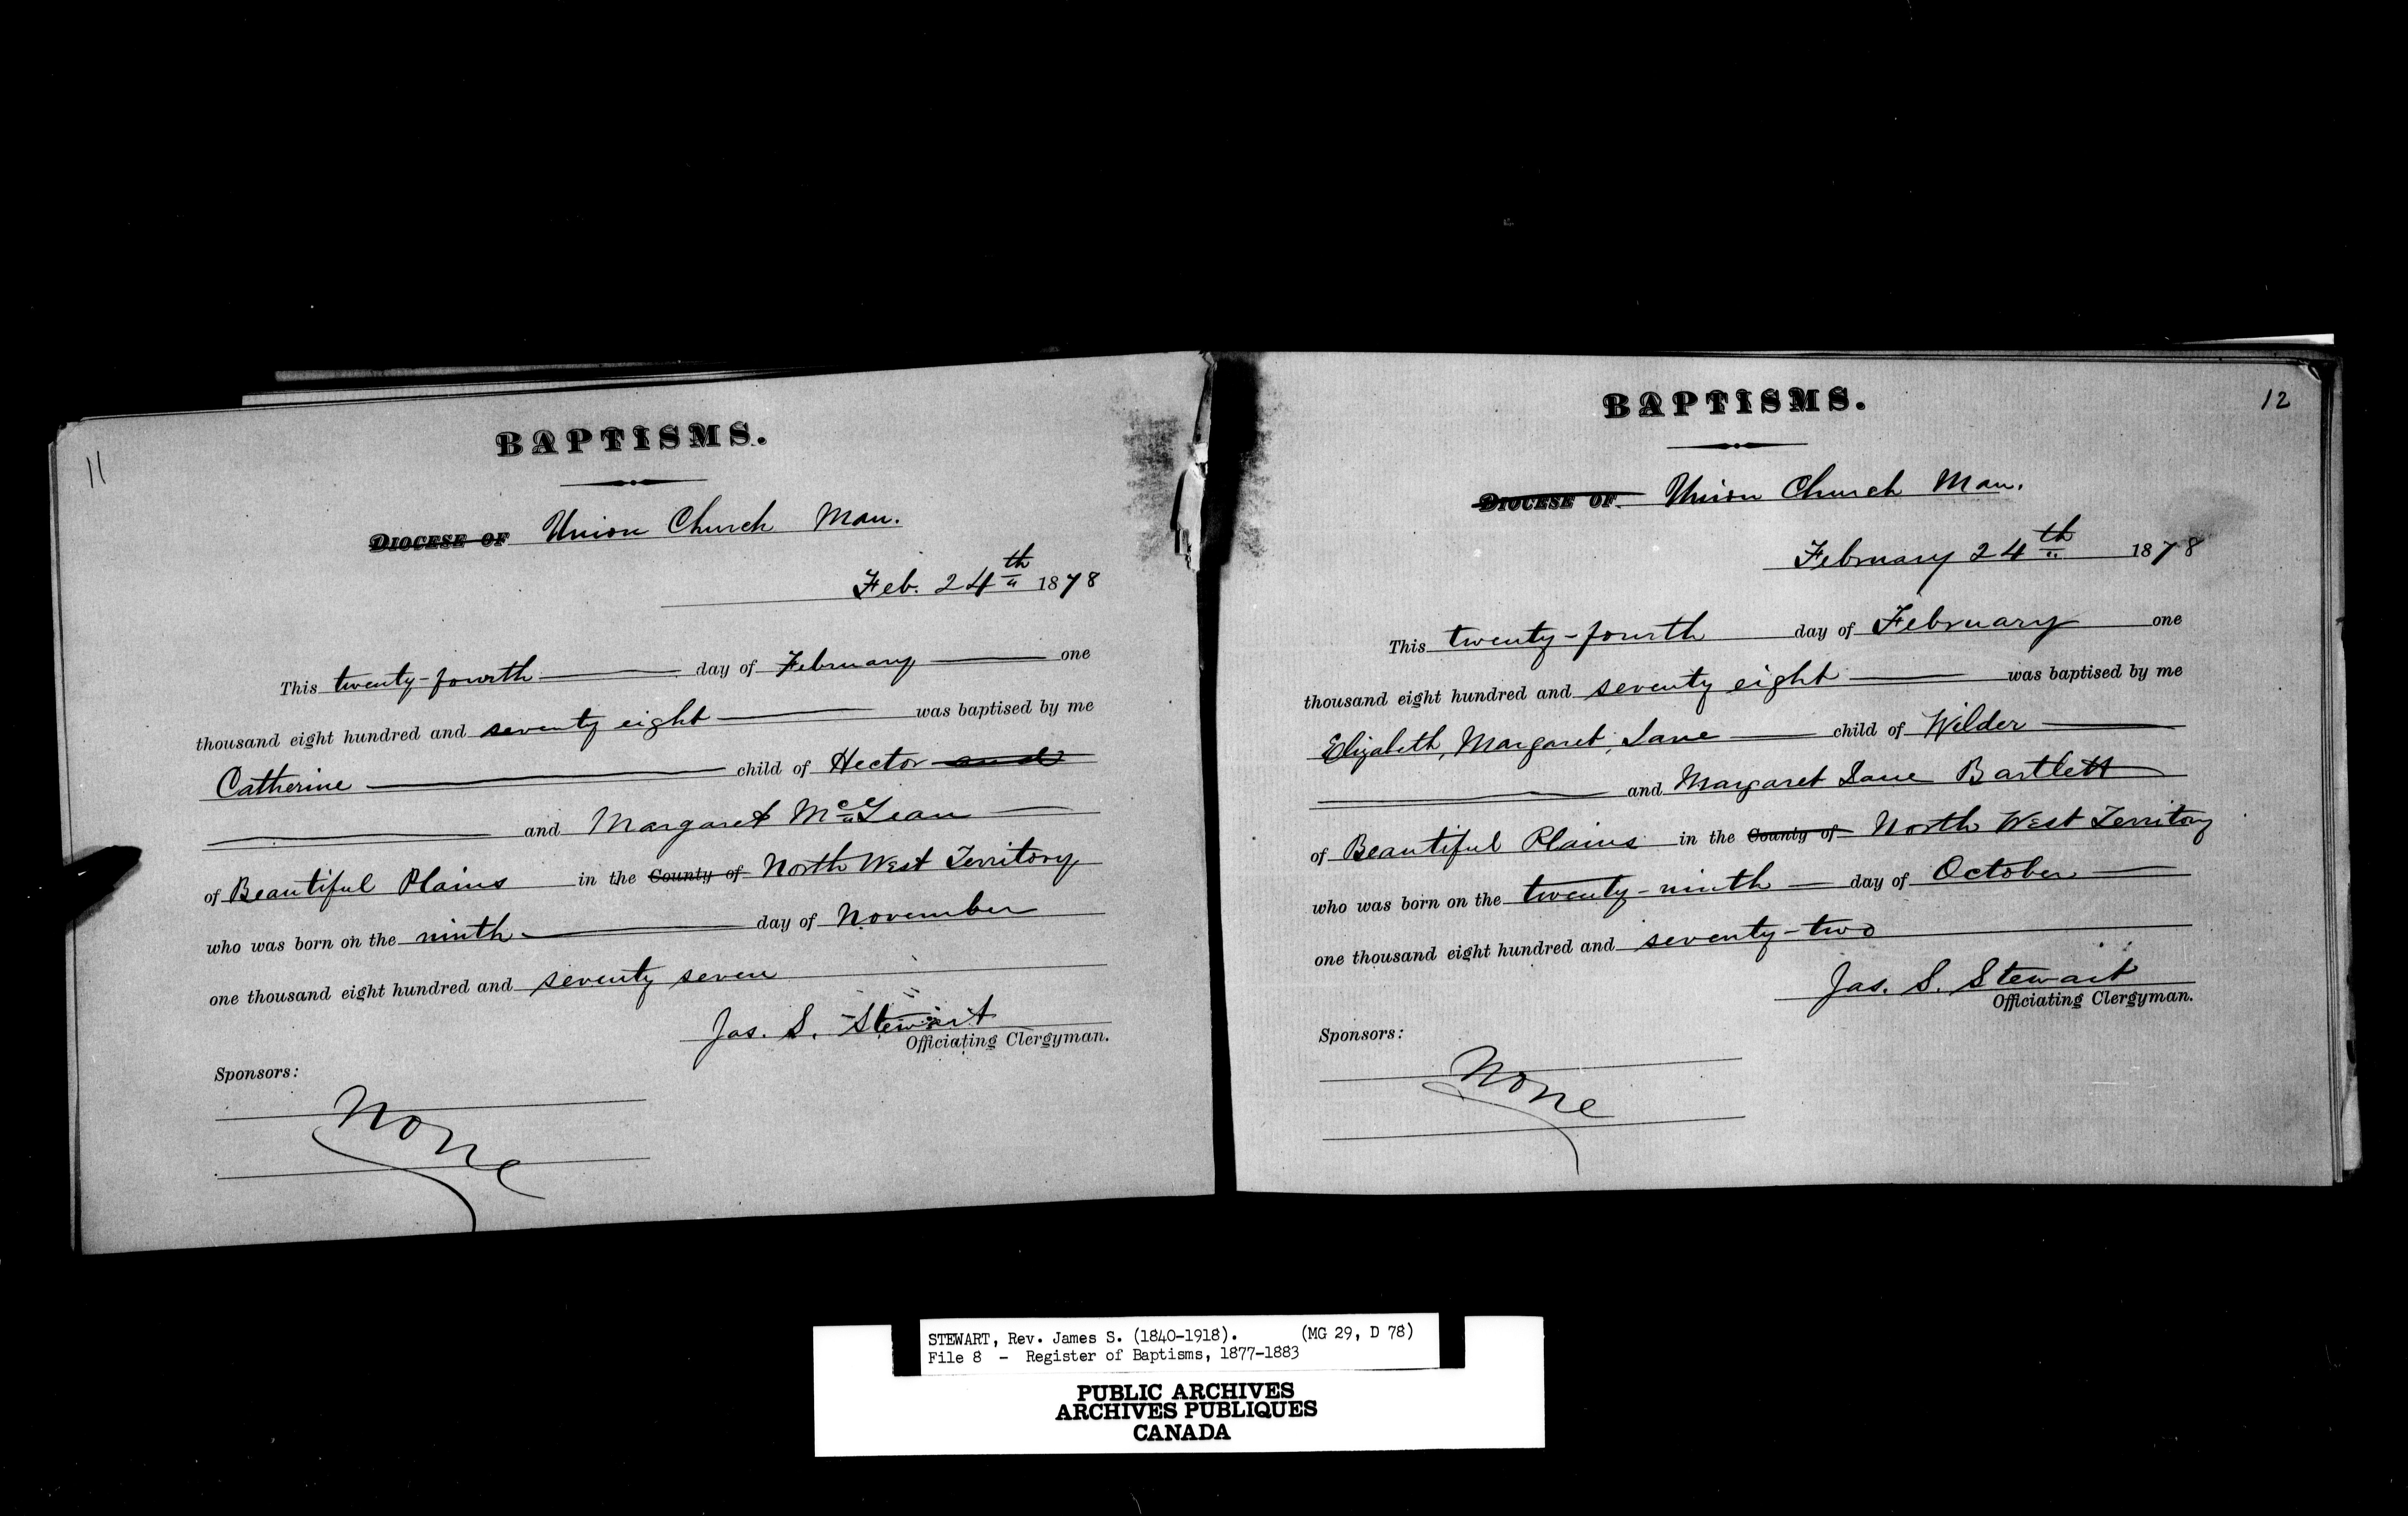 11
BAPTISMS.
DIOCESE OF Union Church Man.
Feb. 24th 1878
This twenty-fourth day of February one
thousand eight hundred and seventy eight was baptised by me
Catherine child of Hector and
and Margaret McLean
of Beautiful Plains in the County of North West Territory
who was born on the ninth day of November
one thousand eight hundred and seventy seven
Jas. S. Stewart
Officiating Clergyman.
Sponsors:
None
12
BAPTISMS.
DIOCESE OF Union Church Man.
February 24th 1878
This twenty-fourth day of February one
thousand eight hundred and seventy eight was baptised by me
Elizabeth, Margaret, Jane child of Wilder
and Margaret Jane Bartlett
of Beautiful Plains in the County of North West Territory
who was born on the twenty-ninth day of October
one thousand eight hundred and seventy-two
Jas. S. Stewart
Officiating Clergyman.
Sponsors:
None
STEWART, Rev. James S. (1840-1918). (MG 29, D 78)
File 8 - Register of Baptisms, 1877-1883
PUBLIC ARCHIVES
ARCHIVES PUBLIQUES
CANADA